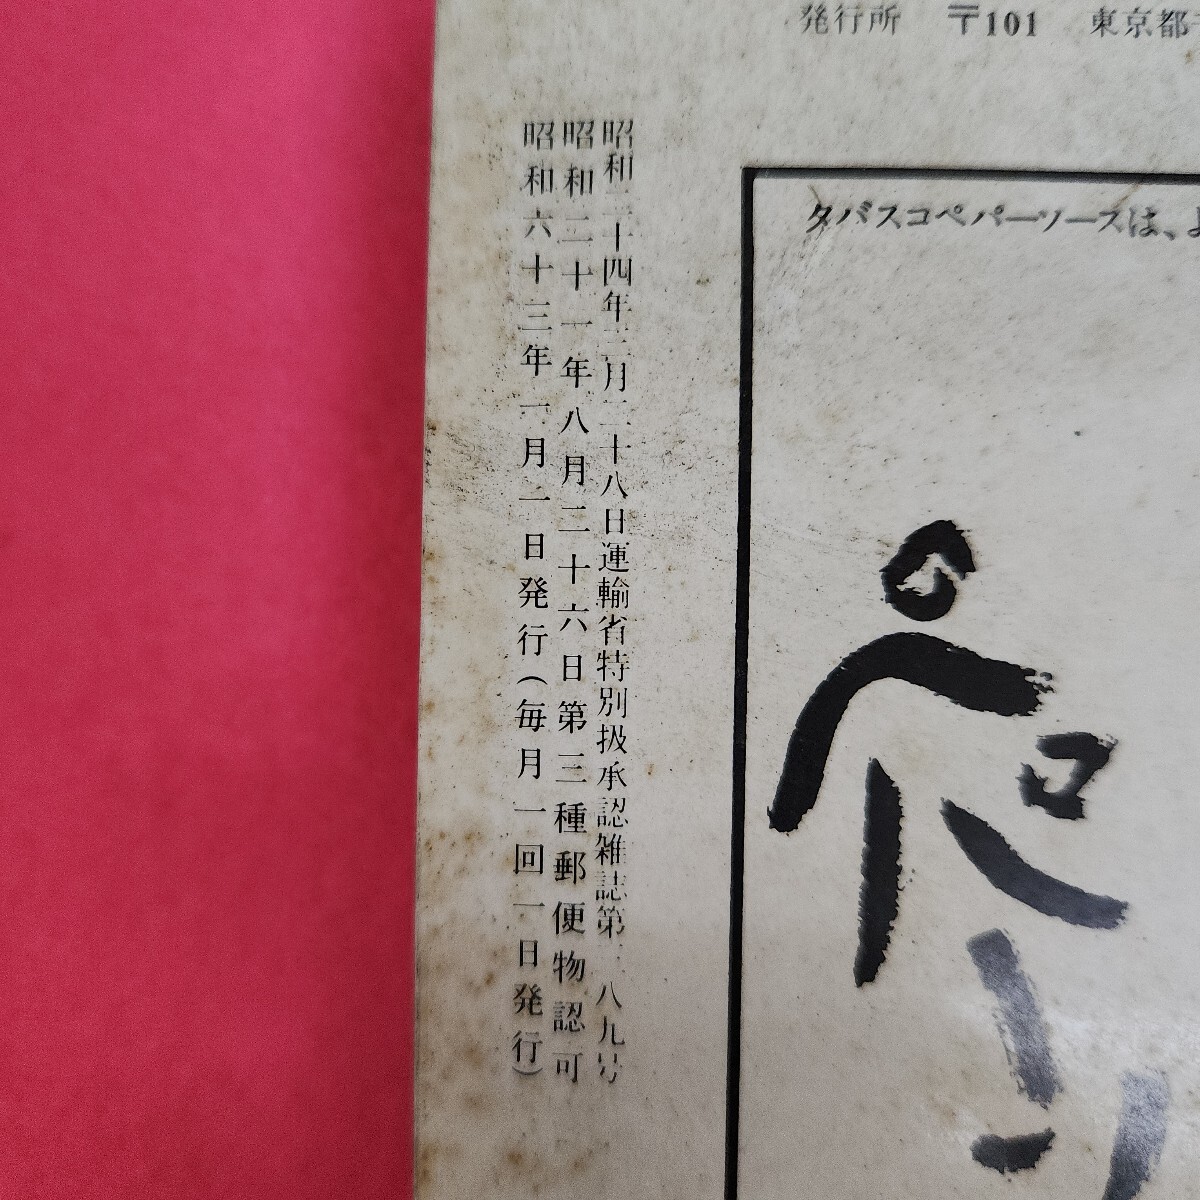 発行所 〒101 東京都
昭和二十四年三月二十八日運輸省特別扱承認雑誌第 八九号
昭和二十一年八月二十六日第三種郵便物認可
昭和六十三年一月一日発行(毎月一回一日発行)
タバスコペパーソースは、よ